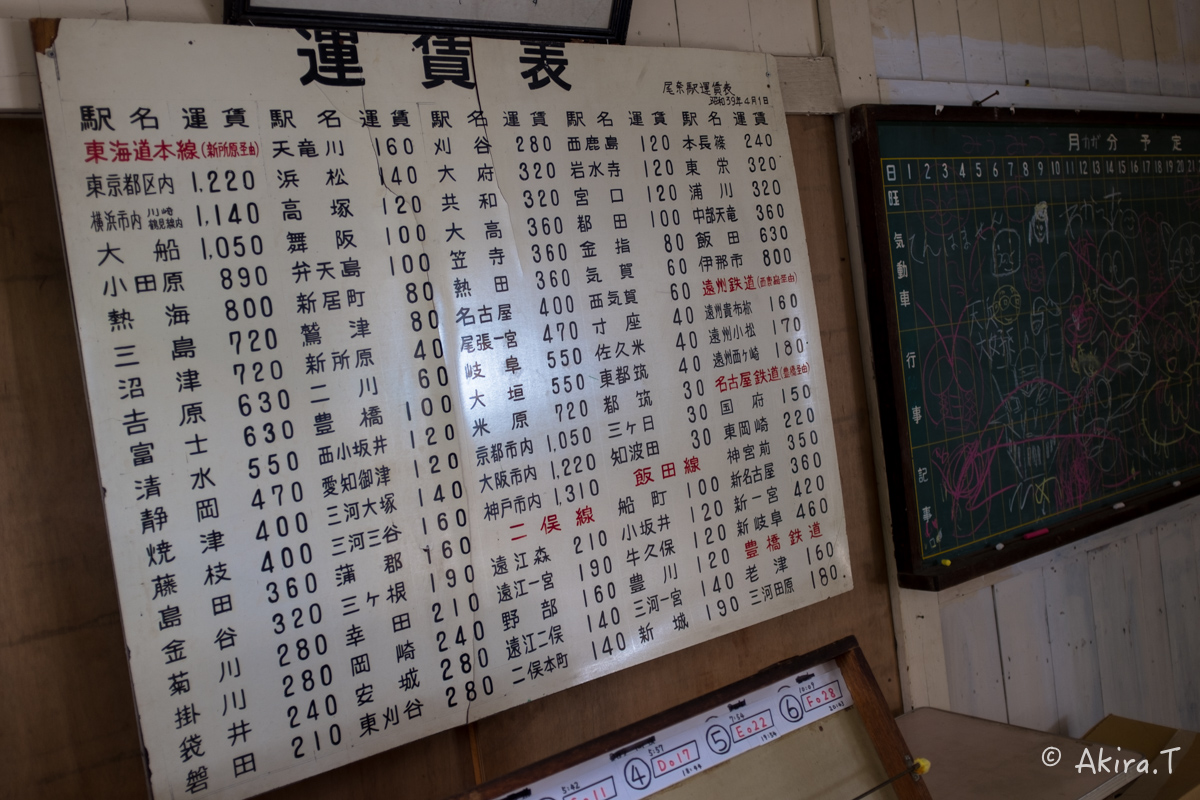 運賃表
尾奈駅運賃表
昭和39年4月1日
駅名 運賃
東海道本線(新所原圣由)
東京都区内 1,220
横浜市内 川崎鶴見線内 1,140
大船 1,050
小田原 890
熱海 800
三島 720
沼津 720
吉原 630
富士 630
清水 550
静岡 470
焼津 400
藤枝 400
島田 360
金谷 320
菊川 280
掛川 280
袋井 240
磐田 210
駅名 運賃
天竜川 160
浜松 140
高塚 120
舞阪 100
弁天島 100
新居町 80
鷲津 80
新所原 40
二川 60
豊橋 100
西小坂井 120
愛知御津 120
三河大塚 140
三河三谷 160
蒲郡 160
三ヶ根 190
幸田 210
岡崎 240
安城 280
東刈谷 280
駅名 運賃
刈谷 280
大府 320
共和 320
大高 360
笠寺 360
熱田 360
名古屋 400
尾張一宮 470
岐阜 550
大垣 550
米原 720
京都市内 1,050
大阪市内 1,220
神戸市内 1,310
二俣線
遠江森 210
遠江一宮 190
野部 160
遠江二俣 140
二俣本町 140
駅名 運賃
西鹿島 120
岩水寺 120
宮口 120
都田 100
金指 80
気賀 60
西気賀 60
寸座 40
佐久米 40
東都筑 40
都筑 30
三ヶ日 30
知波田 30
飯田線
船町 100
小坂井 120
牛久保 120
豊川 120
三河一宮 140
新城 190
駅名 運賃
本長篠 240
東栄 320
浦川 320
中部天竜 360
飯田 630
伊那市 800
遠州鉄道(西鹿島圣由)
遠州貴布祢 160
遠州小松 170
遠州西ヶ崎 180
名古屋鉄道(豊橋圣由)
国府 150
東岡崎 220
神宮前 350
新名古屋 360
新一宮 420
新岐阜 460
豊橋鉄道
老津 160
三河田原 180
月 分 予定
日 1 2 3 4 5 6 7 8 9 10 11 12 13 14 15 16 17 18 19 20 21
気動車
行事
記事
④ 5:57 D017 18:44
⑤ 7:56 E022 19:54
⑥ 10:09 F028
5:42
© Akira.T